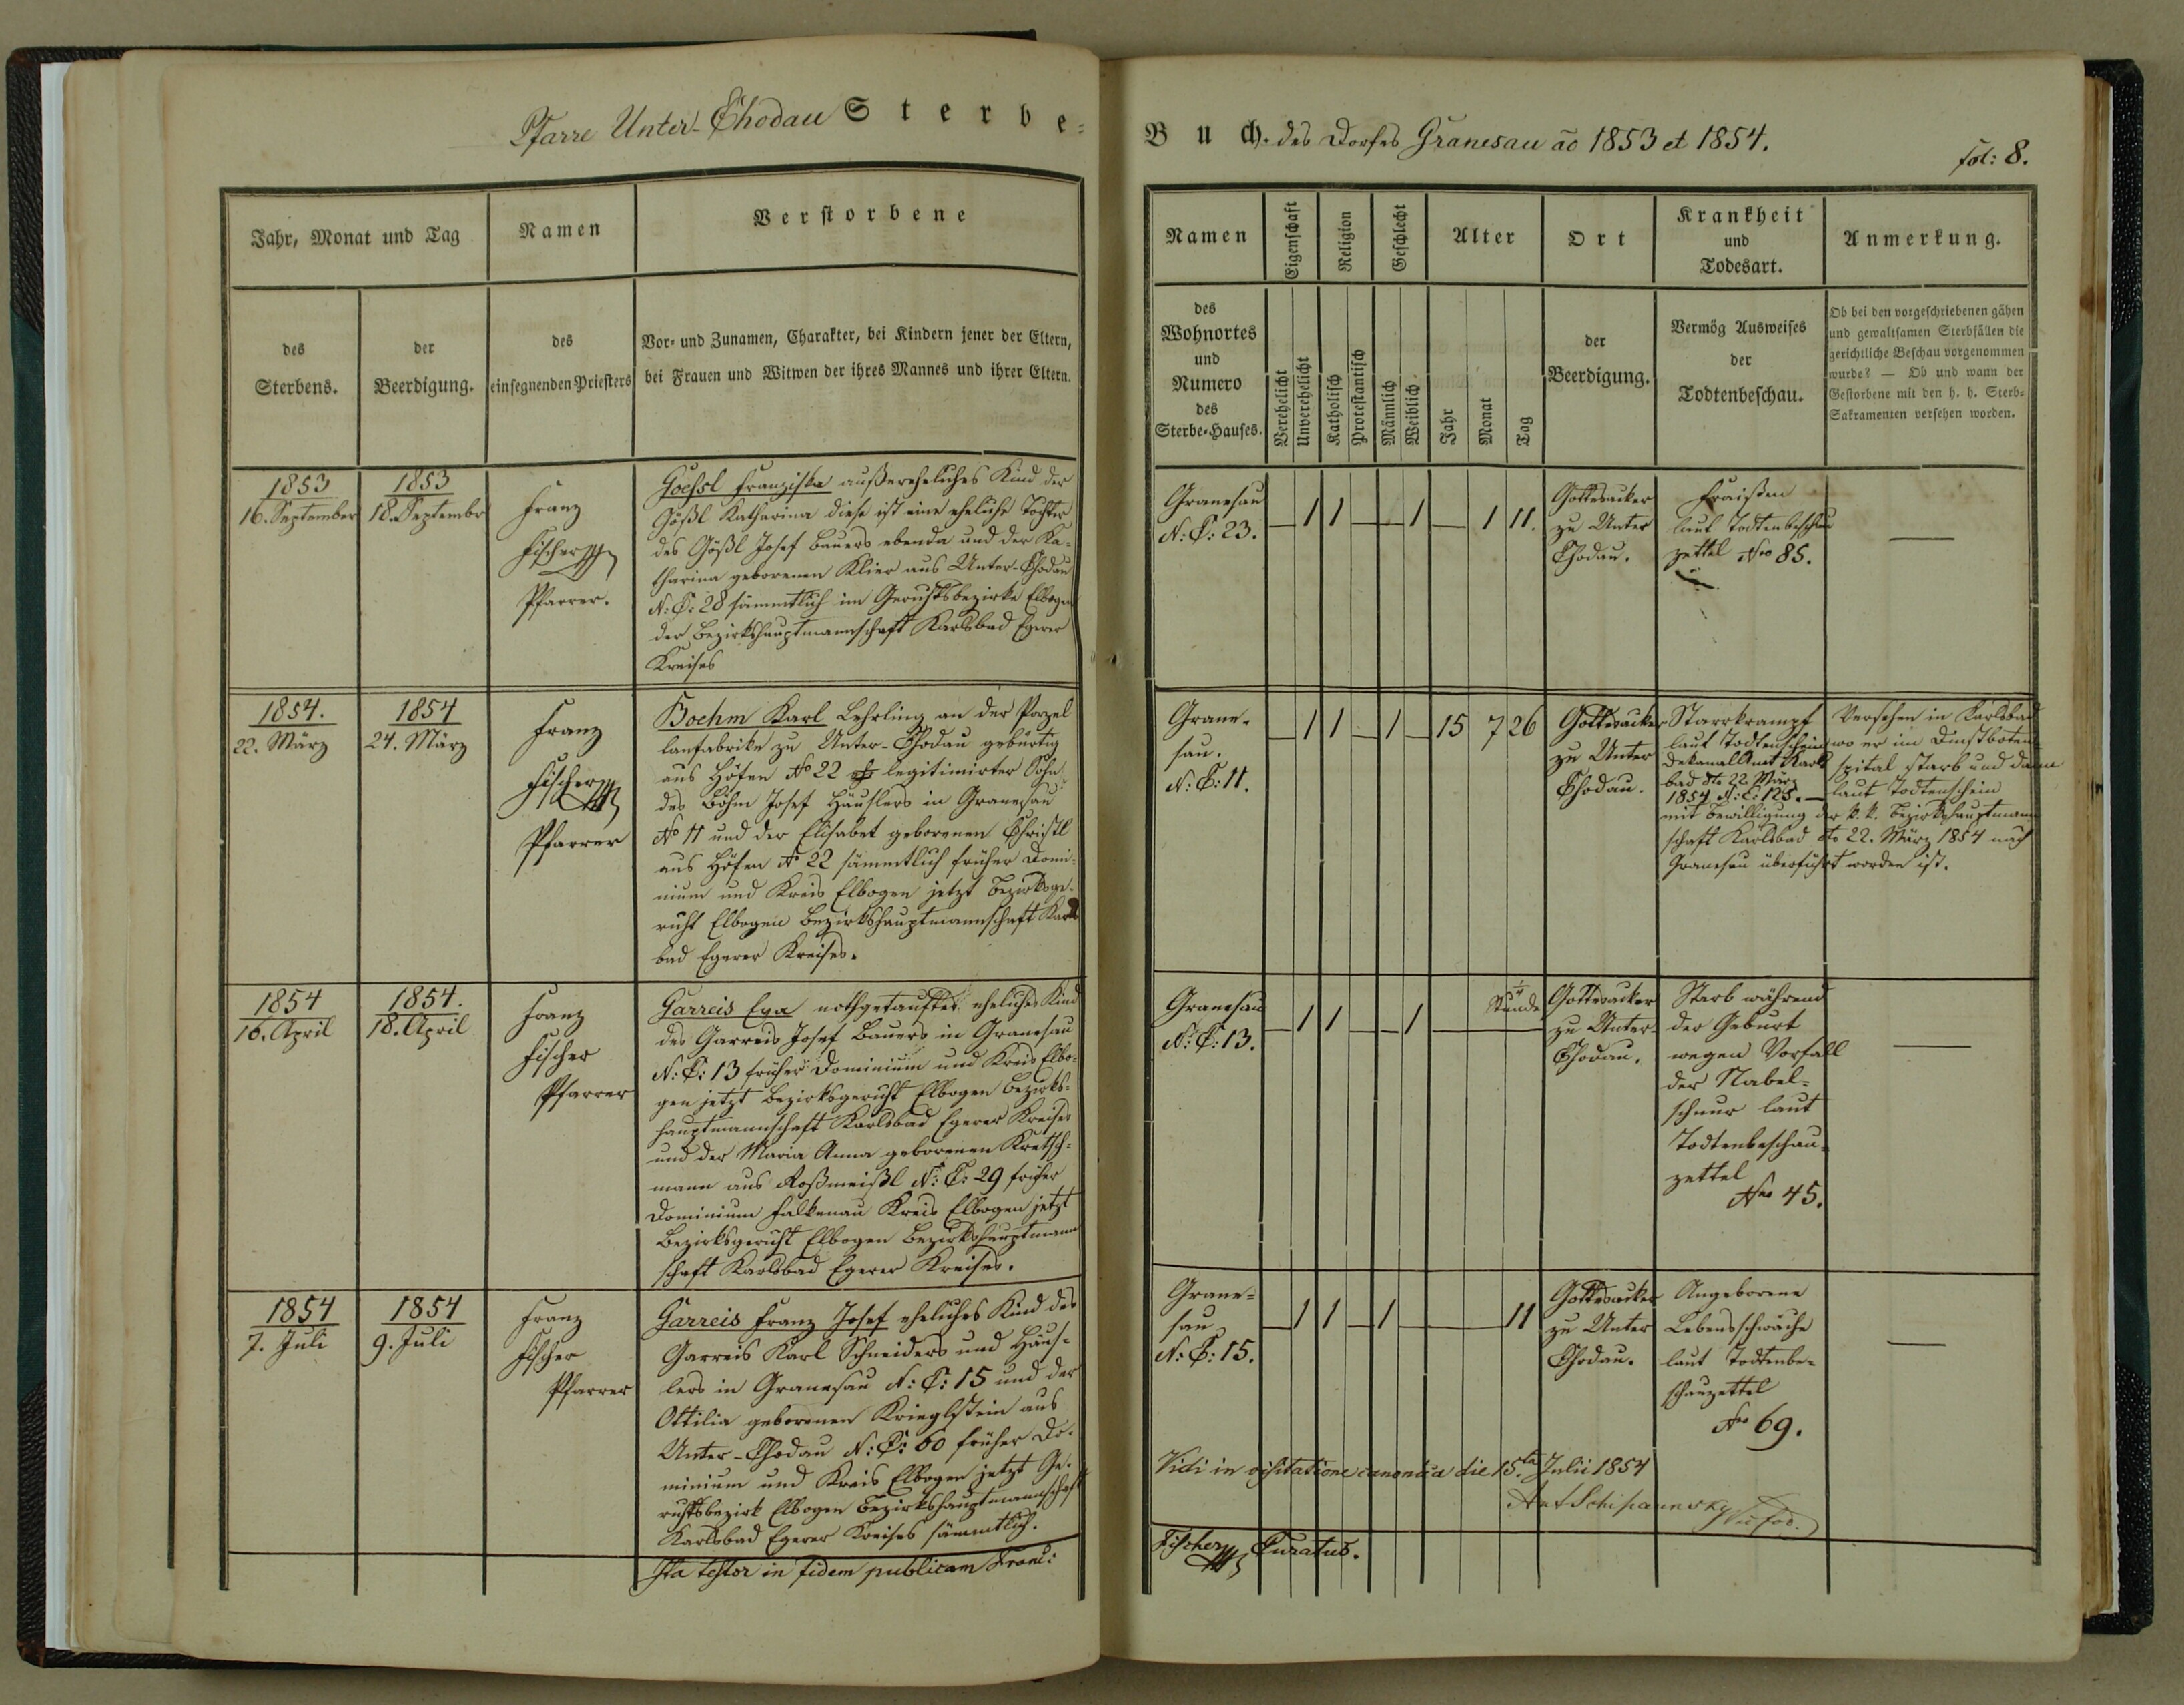 Pfarre Unter-Chodau Sterbe-
Jahr, Monat und Tag
Namen
Verstorbene
des
Sterbens.
der
Beerdigung.
des
einsegnenden Priesters
Vor- und Zunamen, Charakter, bei Kindern jener der Eltern,
bei Frauen und Witwen der ihres Mannes und ihrer Eltern.
1853
16. September
1853
18. Septembr
Franz
Fischer
Pfarrer.
Goeßl Franziska außereheliches Kind der
Gößl Katharina diese ist eine eheliche Tochter
des Gößl Josef Bauers ebenda und der Ka-
tharina geborenen Klier aus Unter-Chodau
N: C: 28 sämmtlich im Gerichtsbezirke Elbogen
der Bezirkshauptmannschaft Karlsbad Egerer
Kreises
1854.
22. März
1854
24. März
Franz
Fischer
Pfarrer
Boehm Karl Lehrling an der Porzel
lanfabrike zu Unter-Chodau gebürtig
aus Höfen No 22 legitimirter Sohn
des Böhm Josef Häuslers in Granesau
No 11 und der Elisabet geborenen Christl
aus Höfen No 22 sämmtlich früher Domi-
nium und Kreis Elbogen jetzt Bezirksge-
richt Elbogen Bezirkshauptmannschaft Karls
bad Egerer Kreises.
1854
16. April
1854.
18. April
Franz
Fischer
Pfarrer
Garreis Eva nothgetauftes eheliches Kind
des Garreis Josef Bauers in Granesau
N: C: 13 früher Dominium und Kreis Elbo-
gen jetzt Bezirksgericht Elbogen Bezirks-
hauptmannschaft Karlsbad Egerer Kreises
und der Maria Anna geborenen Kretsch-
mann aus Roßmeißl N: C: 29 früher
Dominium Falkenau Kreis Elbogen jetzt
Bezirksgericht Elbogen Bezirkshauptmann
schaft Karlsbad Egerer Kreises.
1854
7. Juli
1854
9. Juli
Franz
Fischer
Pfarrer
Garreis Franz Josef eheliches Kind des
Garreis Karl Schneiders und Häus-
lers in Granesau N: C: 15 und der
Ottilia geborenen Krieglstein aus
Unter-Chodau N: C: 60 früher Do-
minium und Kreis Elbogen jetzt Ge-
richtsbezirk Elbogen Bezirkshauptmannschaft
Karlsbad Egerer Kreises sämmtlich.
Ita testor in fidem publicam Franc:
Buch. des Dorfes Granesau ao 1853 et 1854.
fol: 8.
Namen
Eigenschaft
Religion
Geschlecht
Alter
Ort
Krankheit
und
Todesart.
Anmerkung.
des
Wohnortes
und
Numero
des
Sterbe-Hauses.
Verehelicht
Unverehelicht
Katholisch
Protestantisch
Männlich
Weiblich
Jahr
Monat
Tag
der
Beerdigung.
Vermög Ausweises
der
Todtenbeschau.
Ob bei den vorgeschriebenen gähen
und gewaltsamen Sterbfällen die
gerichtliche Beschau vorgenommen
wurde? — Ob und wann der
Gestorbene mit den h. h. Sterb-
Sakramenten versehen worden.
Granesau
N: C: 23.
— 1 1 — — 1 — 1 11.
Gottesacker
zu Unter
Chodau.
Fraißen
laut Todtenbeschau
zettel Nro 85.
—
Grane-
sau.
N: C: 11.
— 1 1 — 1 — 15 7 26
Gottesacker
zu Unter
Chodau.
Starrkrampf
laut Todtenschein
Dekanalamt Karls
bad dto 22. März
1854 N: E: 125. —
Versehen in Karlsbad
wo er im Dienstboten-
spital starb und dann
laut Todtenschein
mit Bewilligung der k. k. Bezirkshauptmann
schaft Karlsbad dto 22. März 1854 nach
Granesau überführt worden ist.
Granesau
N: C: 13.
— 1 1 — — 1 — 1/4
Stunde
Gottesacker
zu Unter
Chodau.
Starb während
der Geburt
wegen Vorfall
der Nabel-
schnur laut
Todtenbeschau-
zettel
Nro 45.
—
Grane-
sau
N: C: 15.
— 1 1 — 1 — 11
Gottesacker
zu Unter
Chodau.
Angeborene
Lebensschwäche
laut Todtenbe-
schauzettel
Nro 69.
—
Vidi in visitatione canonica die 15ta Julii 1854
Ant Schipannsky
Fischer Curatus.